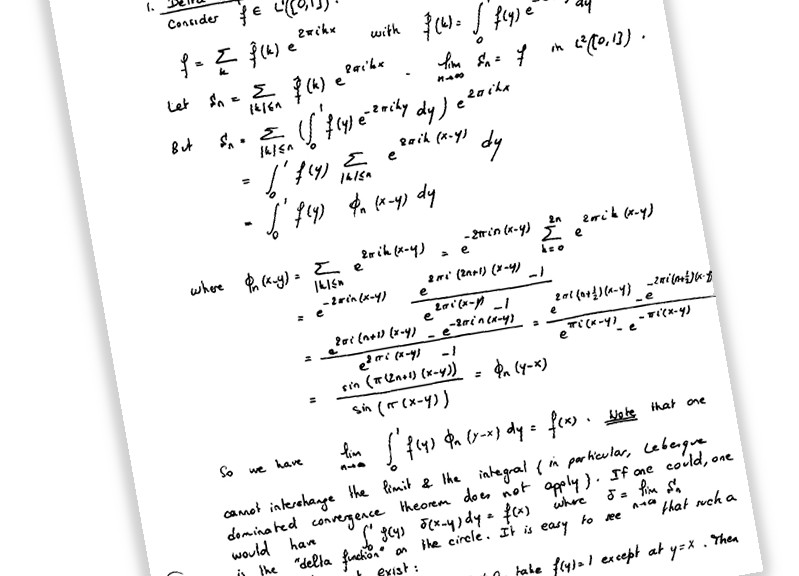 1. Delta
Consider f ∈ L²([0,1]).
f = Σ_k f̂(k) e^{2πikx} with f̂(k) = ∫_0^1 f(y) e dy
Let S_n = Σ_{|k|≤n} f̂(k) e^{2πikx} . lim_{n→∞} S_n = f in L²([0,1]).
But S_n = Σ_{|k|≤n} (∫_0^1 f(y) e^{-2πiky} dy) e^{2πikx}
= ∫_0^1 f(y) Σ_{|k|≤n} e^{2πik(x-y)} dy
= ∫_0^1 f(y) ϕ_n(x-y) dy
where ϕ_n(x-y) = Σ_{|k|≤n} e^{2πik(x-y)} = e^{-2πin(x-y)} Σ_{k=0}^{2n} e^{2πik(x-y)}
= e^{-2πin(x-y)} (e^{2πi(2n+1)(x-y)} - 1) / (e^{2πi(x-y)} - 1)
= (e^{2πi(n+1)(x-y)} - e^{-2πin(x-y)}) / (e^{2πi(x-y)} - 1) = (e^{2πi(n+½)(x-y)} - e^{-2πi(n+½)(x-y)}) / (e^{πi(x-y)} - e^{-πi(x-y)})
= sin(π(2n+1)(x-y)) / sin(π(x-y)) = ϕ_n(y-x)
So we have lim_{n→∞} ∫_0^1 f(y) ϕ_n(y-x) dy = f(x). Note that one
cannot interchange the limit & the integral (in particular, Lebesgue
dominated convergence theorem does not apply). If one could, one
would have ∫_0^1 f(y) δ(x-y) dy = f(x) where δ = lim_{n→∞} S_n
is the "delta function" on the circle. It is easy to see that such a
exist: take f(y)=1 except at y=x. Then